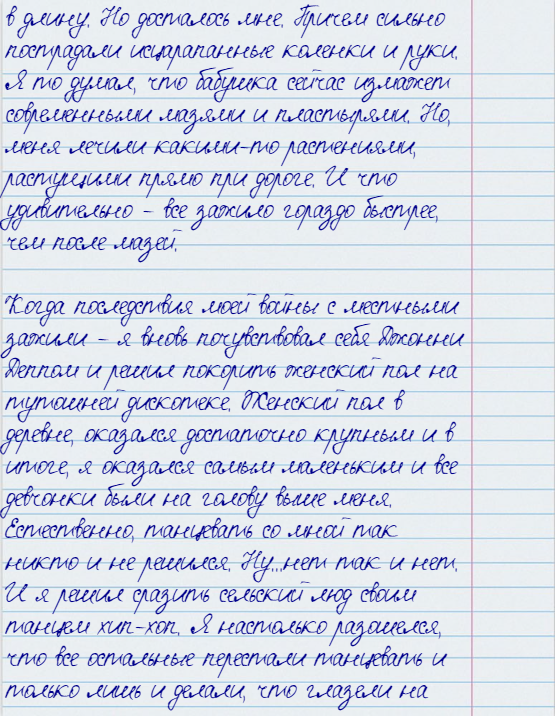 в длину. Но досталось мне. Причем сильно
пострадали исцарапанные коленки и руки.
Я то думал, что бабушка сейчас измажет
современными мазями и пластырями. Но,
меня лечили какими-то растениями,
растущими прямо при дороге. И что
удивительно – все зажило гораздо быстрее,
чем после мазей.
Когда последствия моей войны с местными
зажили – я вновь почувствовал себя Джонни
Деппом и решил покорить женский пол на
тутошней дискотеке. Женский пол в
деревне, оказался достаточно крупным и в
итоге, я оказался самым маленьким и все
девчонки были на голову выше меня.
Естественно, танцевать со мной так
никто и не решился. Ну...нет так и нет.
И я решил сразить сельский люд своим
танцем хип-хоп. Я настолько разошелся,
что все остальные перестали танцевать и
только лишь и делали, что глазели на